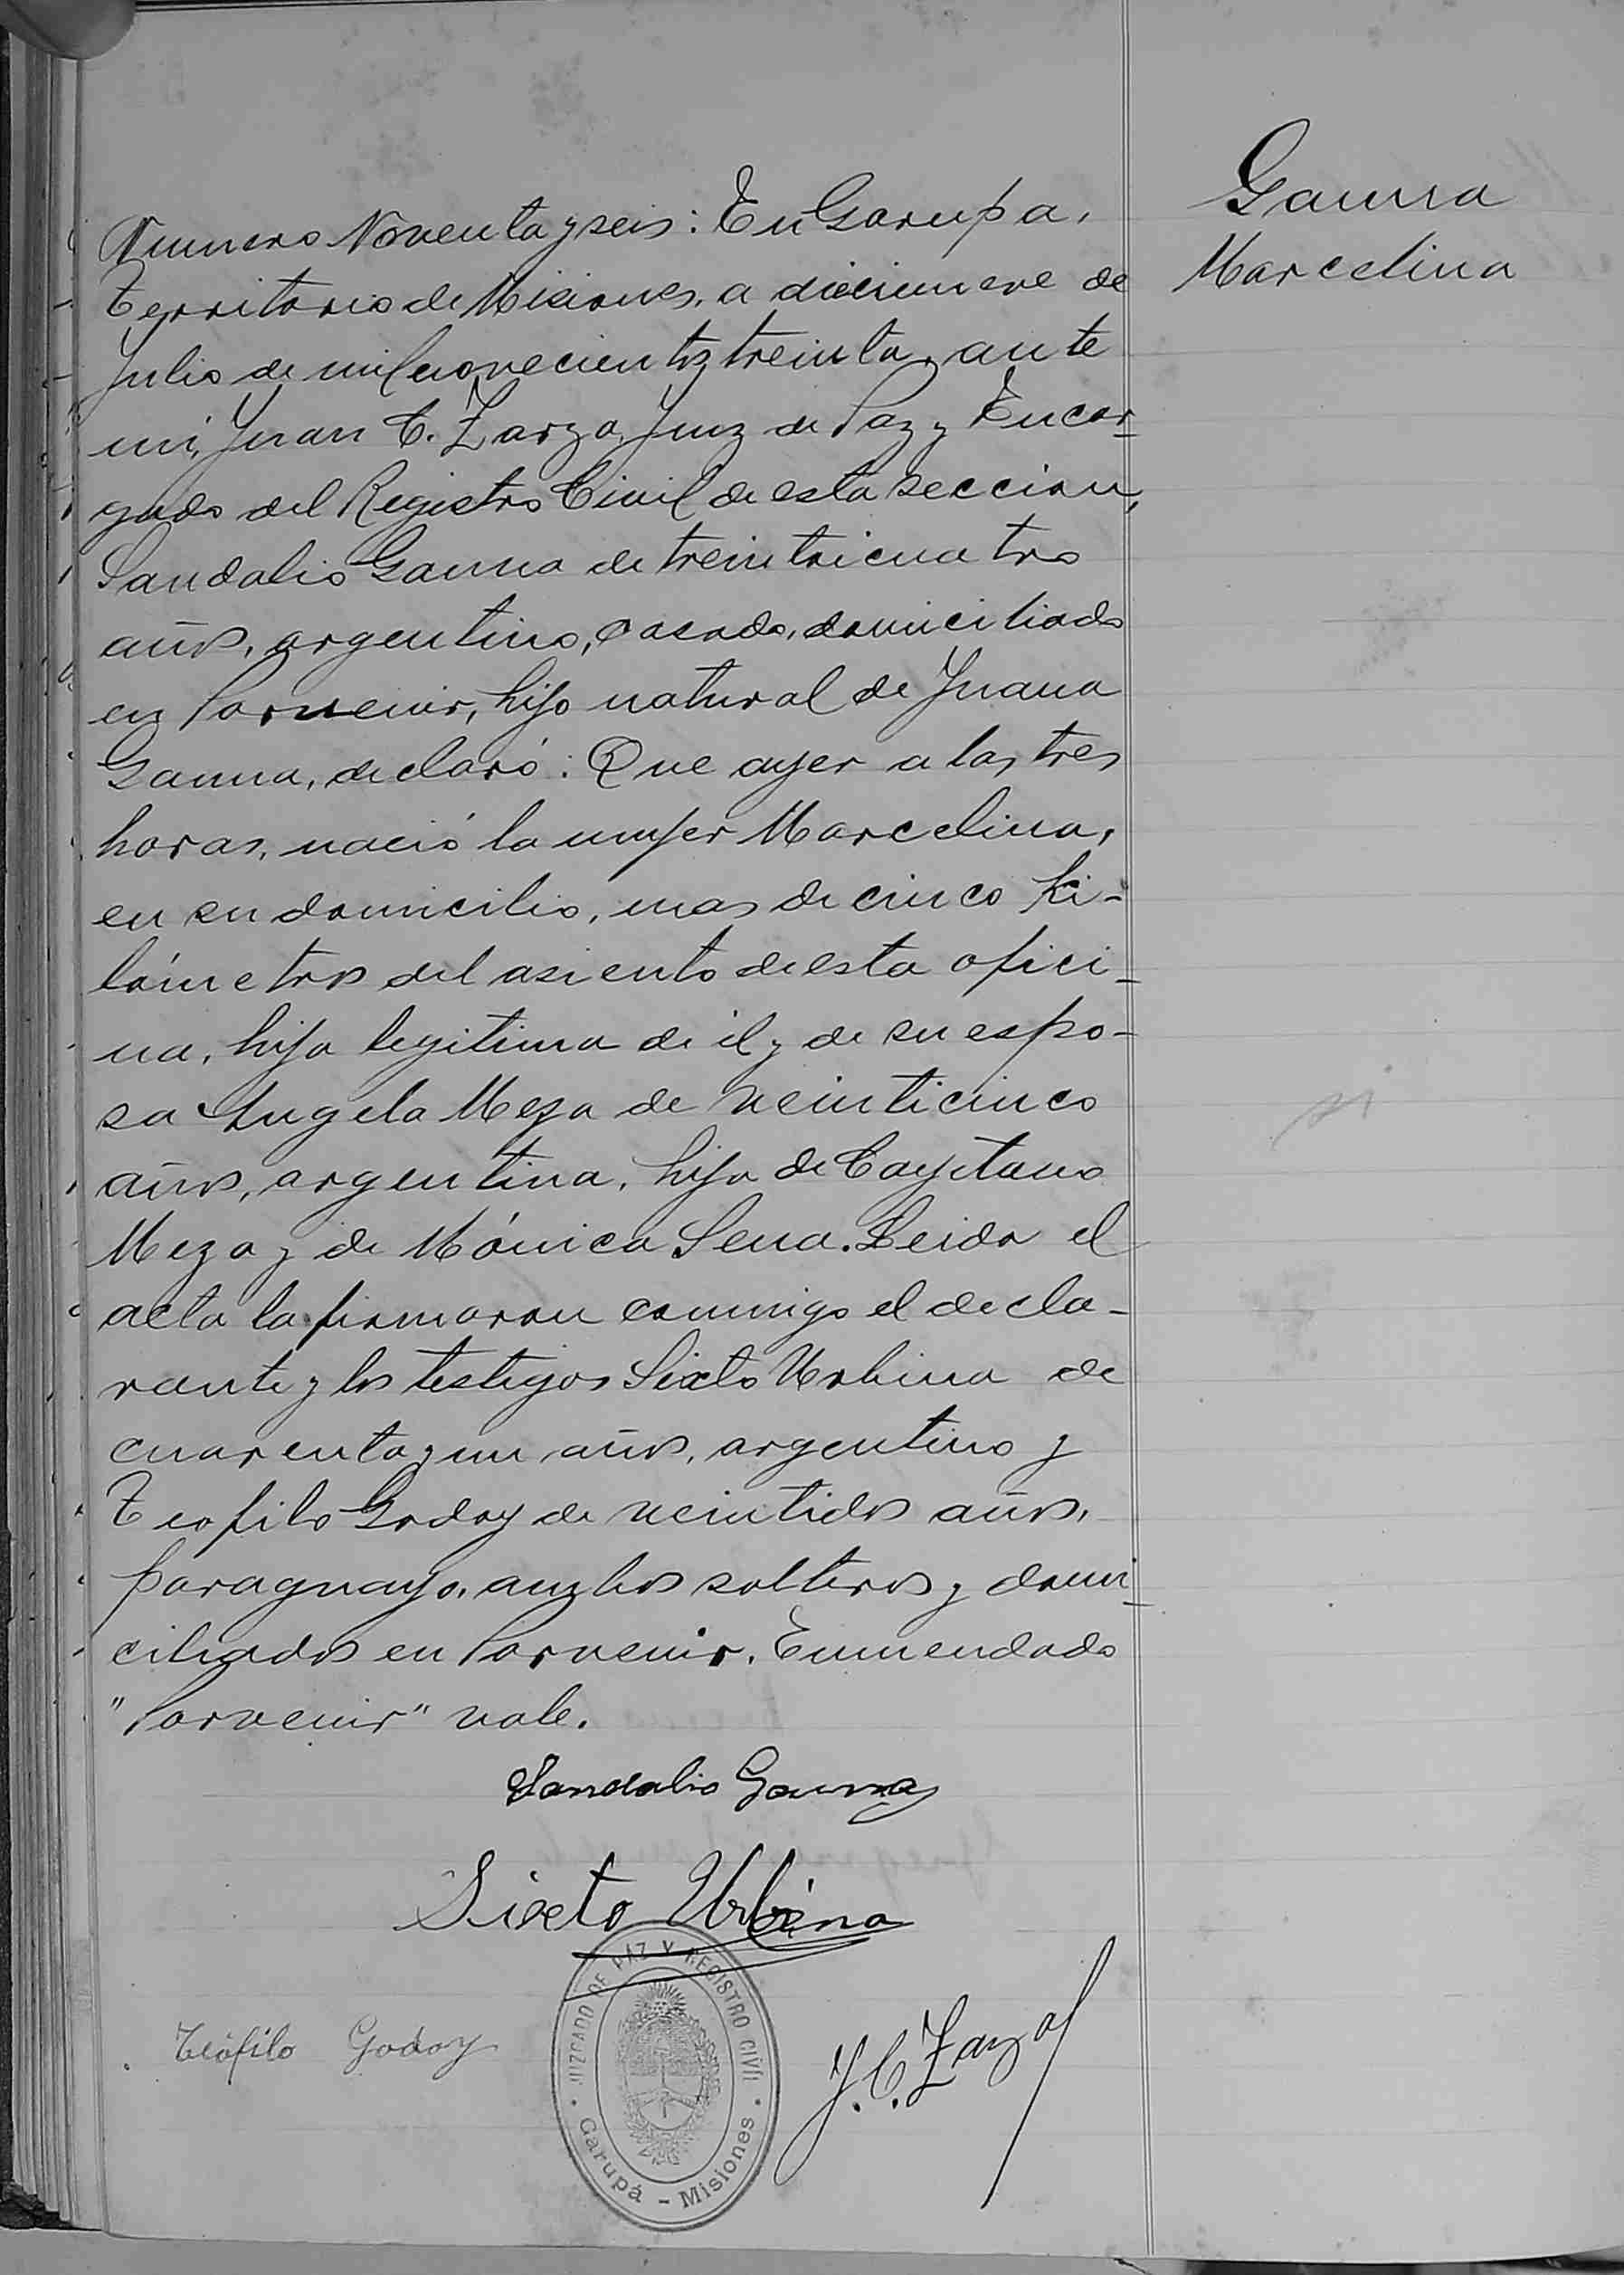 Gauna
Marcelina
Numero Noventa y seis: En Garupa,
Territorio de Misiones, a diecinueve de
Julio de mil novecientos treinta, ante
mi, Juan C. Zarza, Juez de Paz y Encar-
gado del Registro Civil de esta seccion,
Sandalio Gauna de treinta i cuatro
años, argentino, casado, domiciliado
en Porvenir, hijo natural de Juana
Gauna, declaró: Que ayer a las tres
horas, nació la mujer Marcelina,
en su domicilio, mas de cinco ki-
lómetros del asiento de esta ofici-
na, hija legitima de él y de su espo-
sa Angela Meza de veinticinco
años, argentina, hija de Cayetano
Meza y de Mónica Sena. Leida el
acta la firmaron conmigo el decla-
rante y los testigos Sixto Urbina de
cuarenta y un años, argentino y
Teofilo Godoy de veintidos años,
paraguayo, ambos solteros y domi-
ciliados en Porvenir. Enmendado
"Porvenir" vale.
Sandalio Gauna
Sixto Urbina
Teófilo Godoy
J. C. Zarza
JUZGADO DE PAZ Y REGISTRO CIVIL
Garupá - Misiones